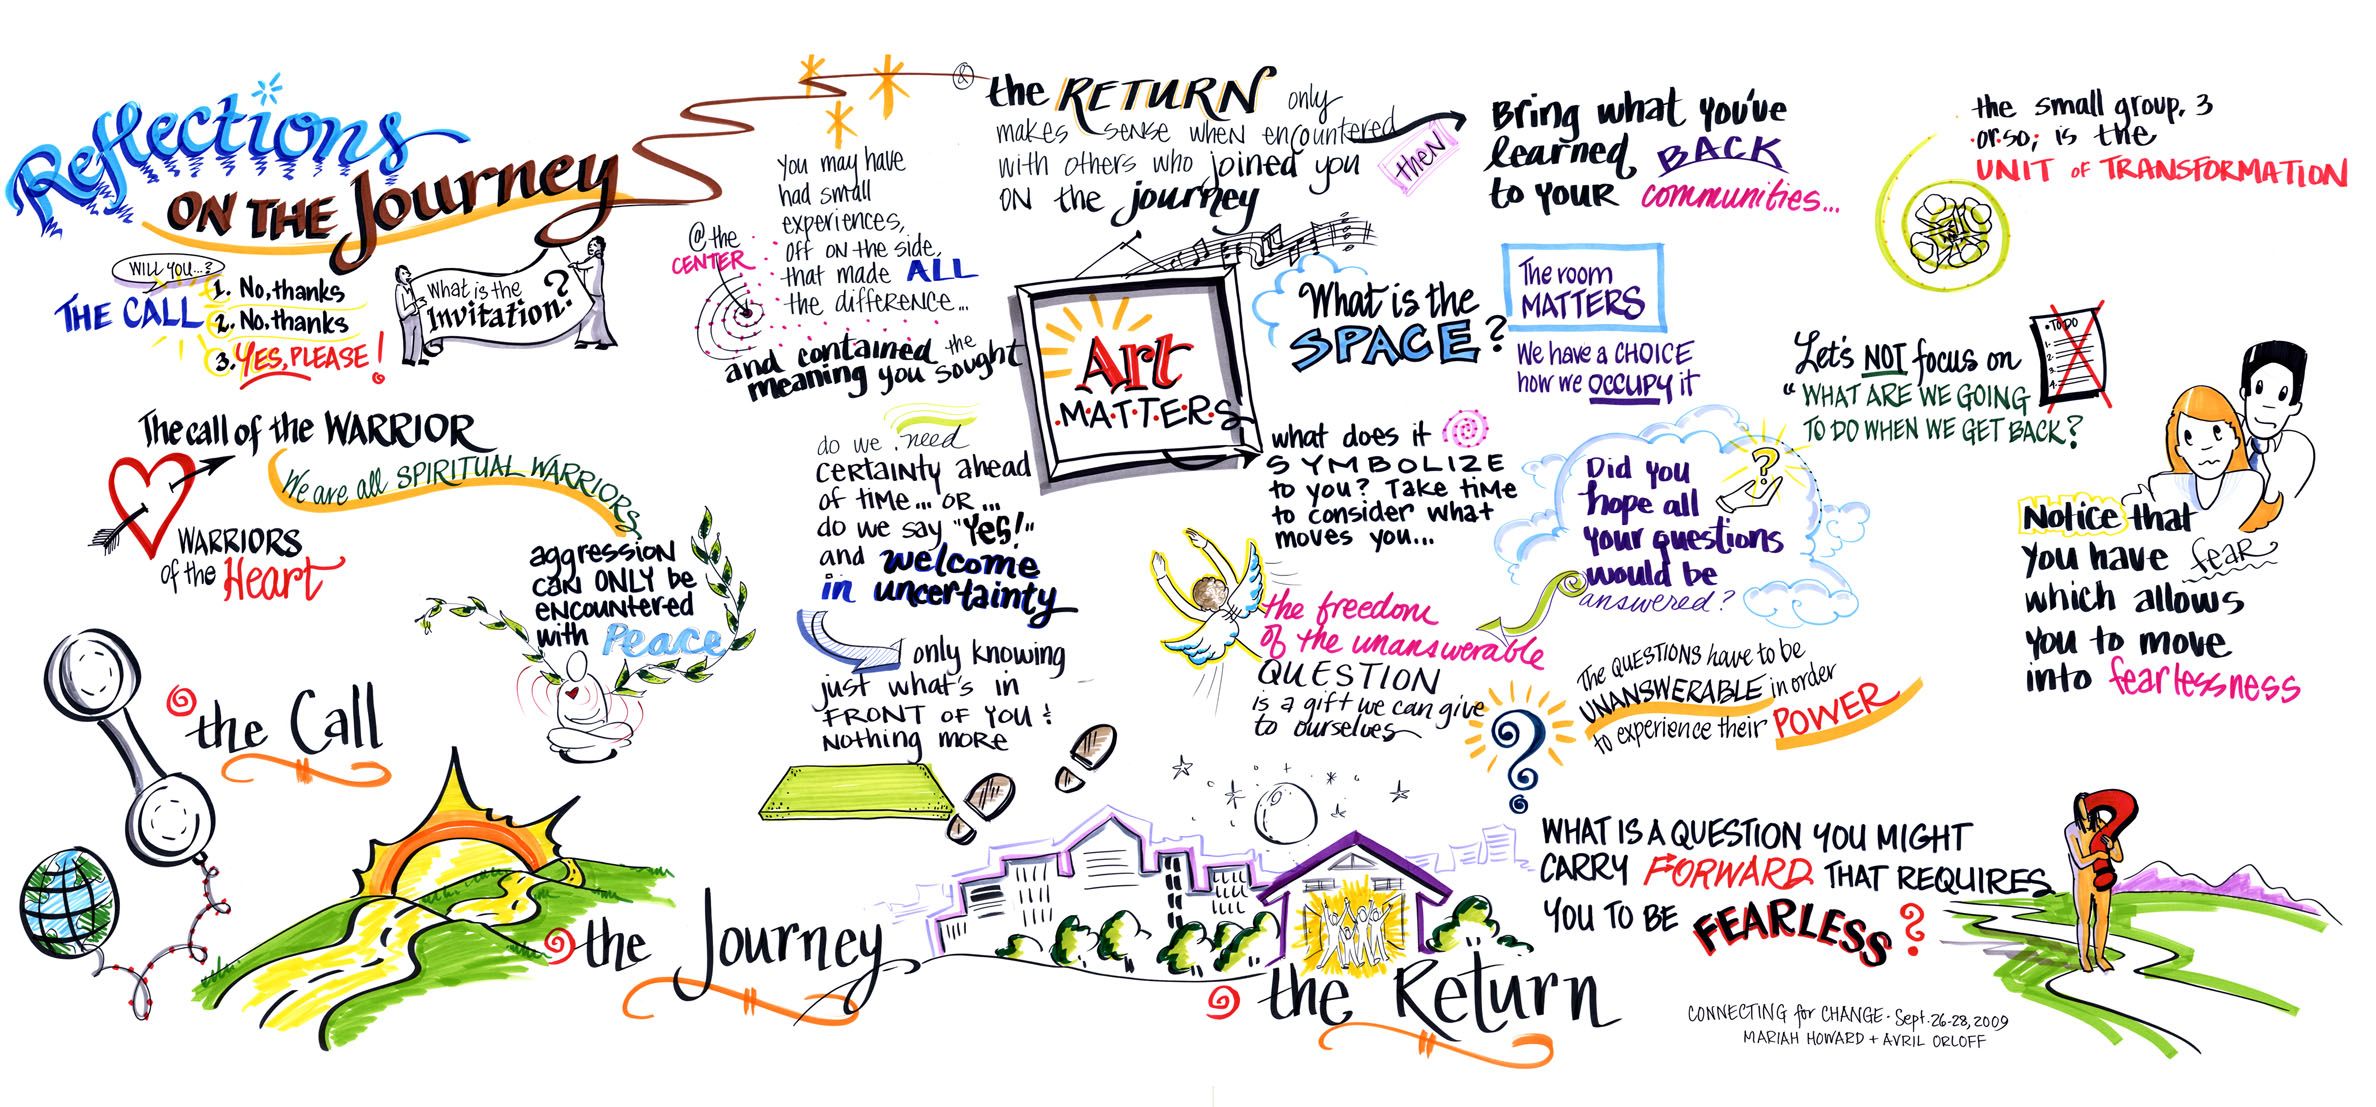 Reflections
ON THE Journey
WILL YOU...?
THE CALL
1. No, thanks
2. No, thanks
3. YES, PLEASE!
What is the
Invitation?
The call of the WARRIOR
We are all SPIRITUAL WARRIORS
WARRIORS
of the Heart
aggression
can ONLY be
encountered
with Peace
the Call
the Journey
the Return
@ the
CENTER
you may have
had small
experiences,
off on the side,
that made ALL
the difference...
and contained the
meaning you sought
do we need
certainty ahead
of time... or...
do we say "Yes!"
and welcome
in uncertainty
only knowing
just what's in
FRONT OF YOU &
Nothing more
&
the RETURN only
makes sense when encountered
with others who joined you
on the journey
then
Bring what you've
learned BACK
to YOUR communities...
Art
M.A.T.T.E.R.S
What is the
SPACE?
The room
MATTERS
We have a CHOICE
how we OCCUPY it
what does it
SYMBOLIZE
to you? Take time
to consider what
moves you...
Did you
hope all
your questions
would be
answered?
?
the freedom
of the unanswerable
QUESTION
is a gift we can give
to ourselves
The QUESTIONS have to be
UNANSWERABLE in order
to experience their POWER
?
WHAT IS A QUESTION YOU MIGHT
CARRY FORWARD THAT REQUIRES
YOU TO BE FEARLESS?
the small group, 3
or so, is the
UNIT OF TRANSFORMATION
Let's NOT focus on
"WHAT ARE WE GOING
TO DO WHEN WE GET BACK?
• TO DO
1.
2.
3.
4.
Notice that
you have fear
which allows
you to move
into fearlessness
?
CONNECTING for CHANGE • Sept. 26-28, 2009
MARIAH HOWARD + AVRIL ORLOFF